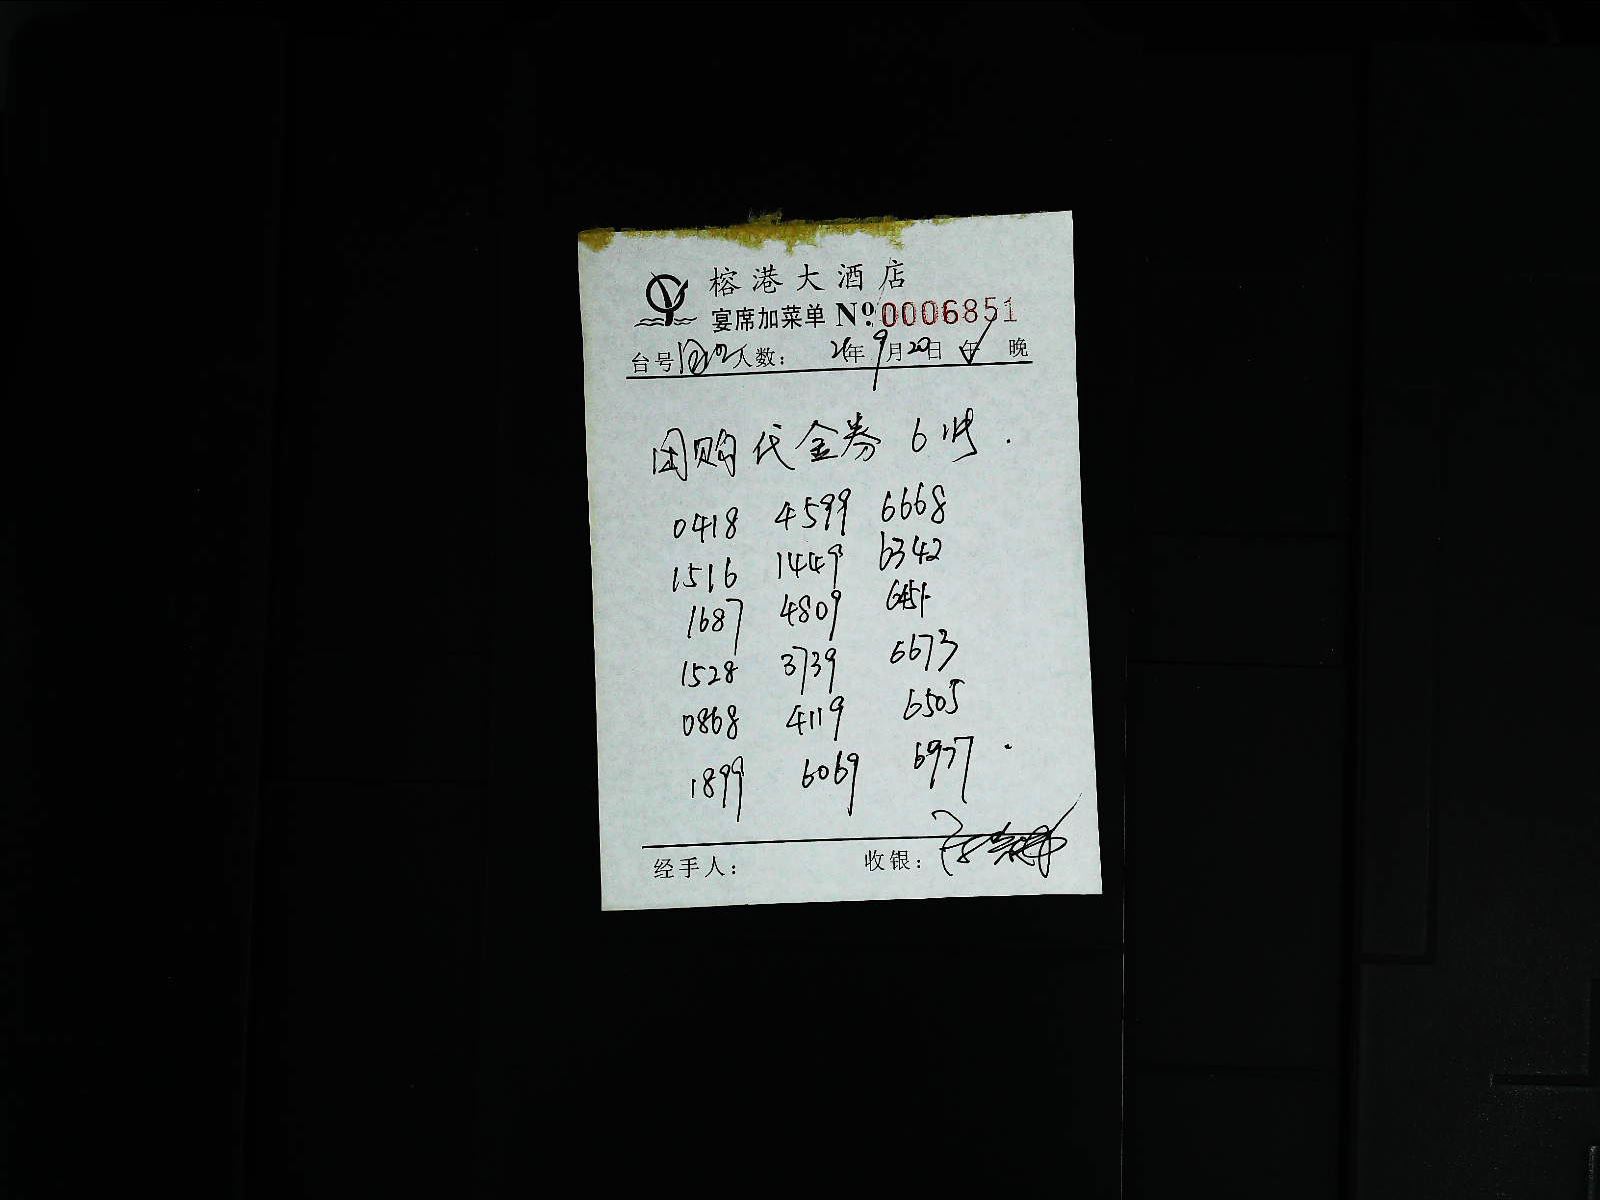 榕港大酒店
宴席加菜单 Nº 0006851
台号 人数： 21年9月20日 午 晚
团购代金券 6张.
0418 4599 6668
1516 1449 6342
1687 4809 6451
1528 3739 6673
0868 4119 6505
1899 6069 6977.
经手人： 收银：